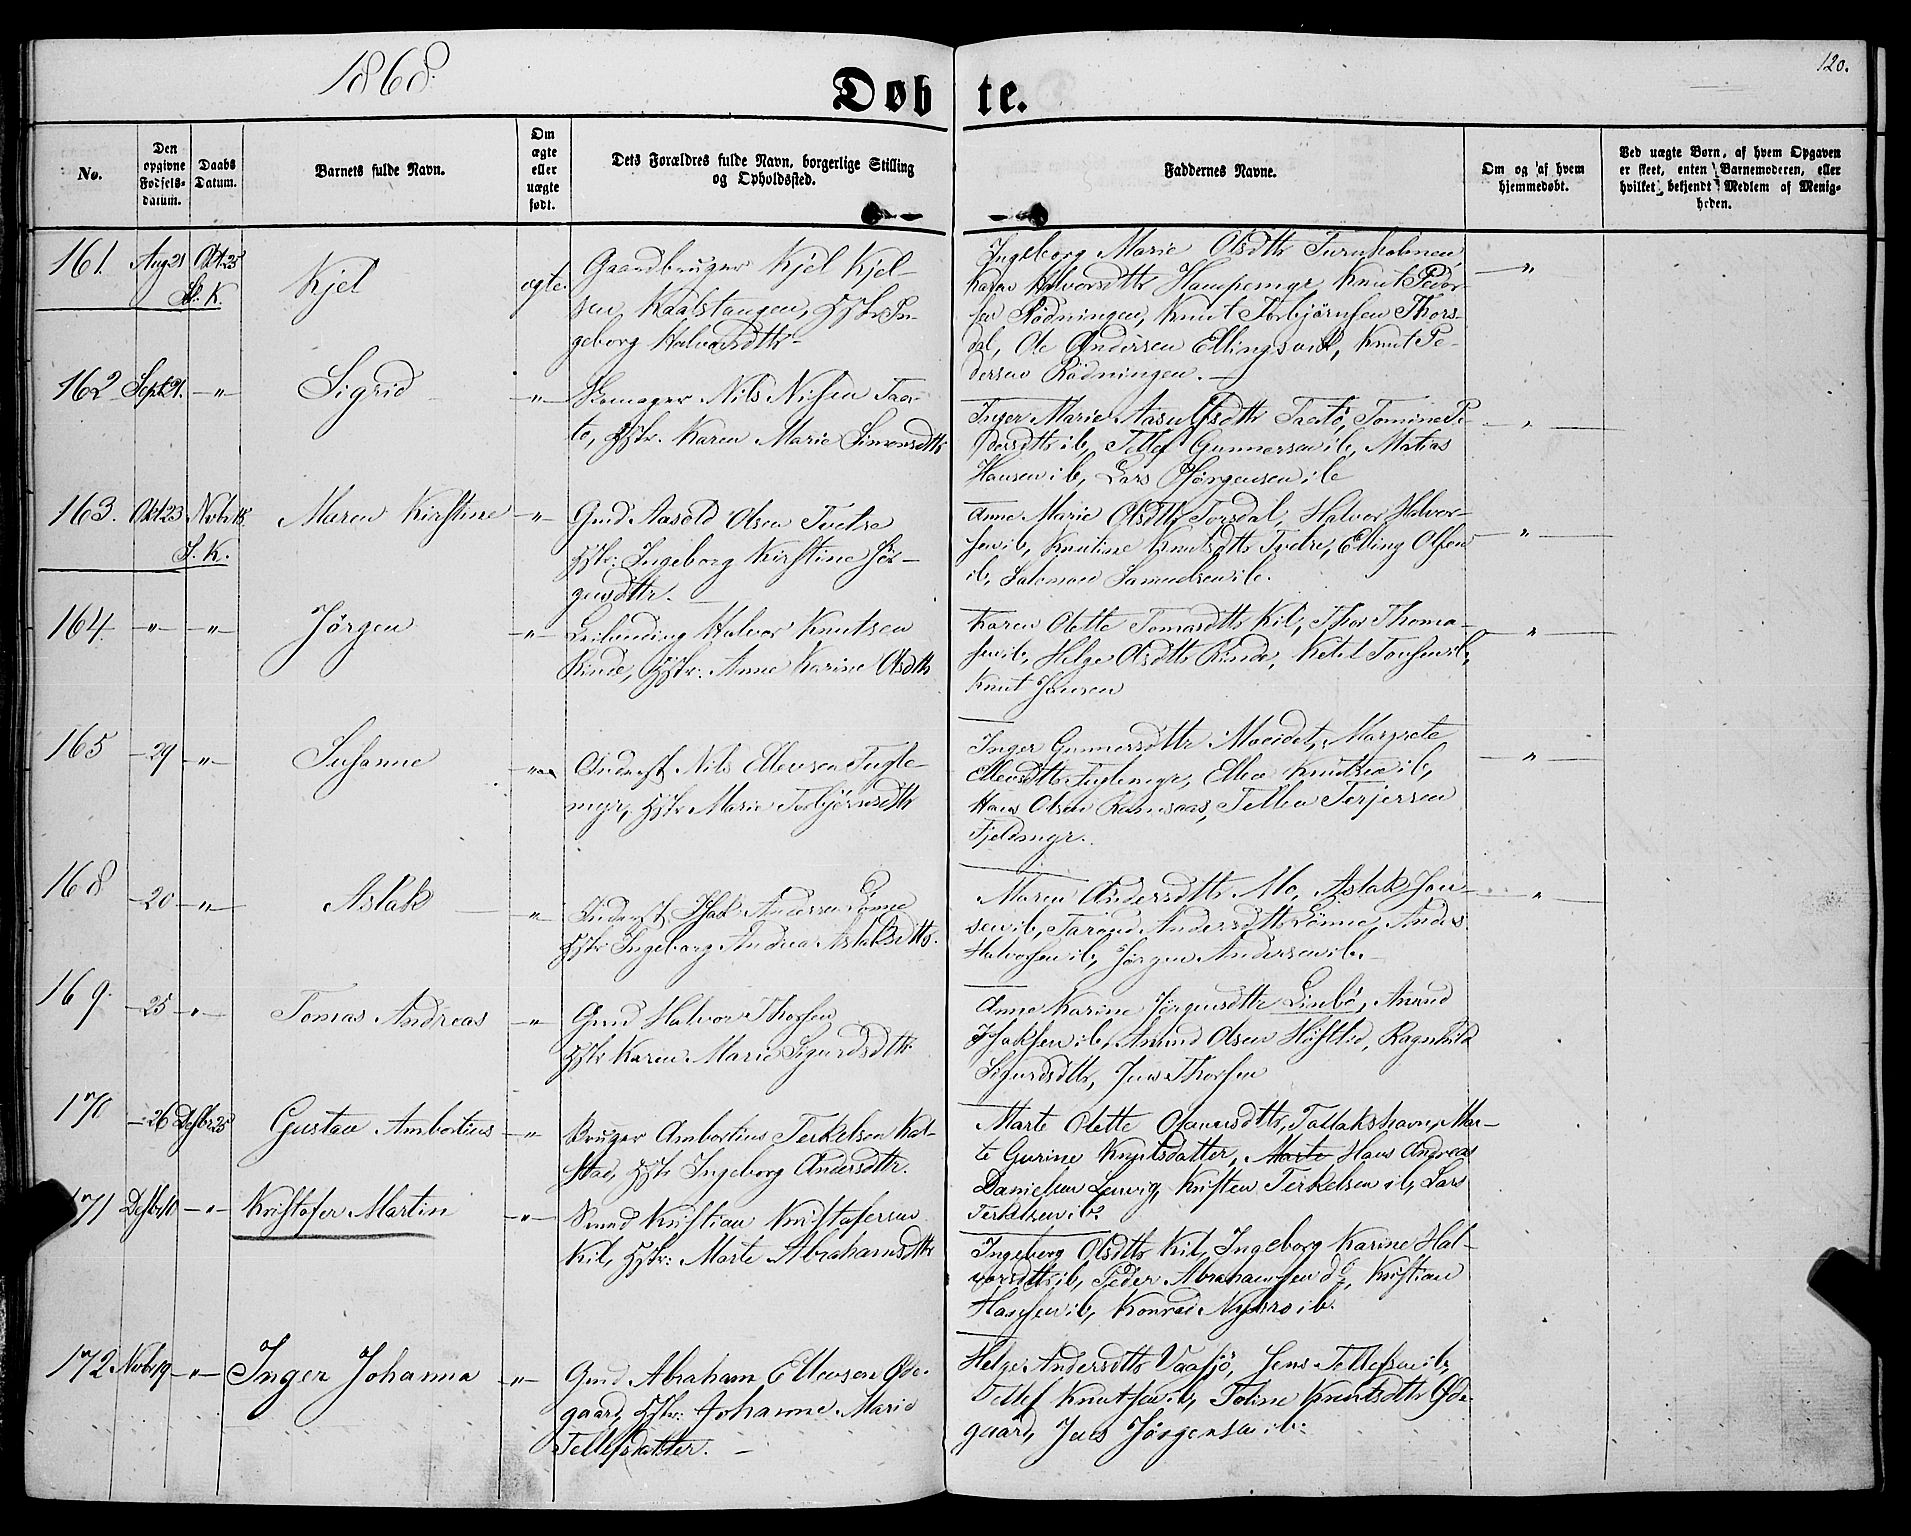 1868.
Døb te.
120.
No.
Den opgivne Fødsels-datum.
Daabs Datum.
Barnets fulde Navn.
Om ægte eller uægte født.
Dets Forældres fulde Navn, borgerlige Stilling og Opholdssted.
Faddernes Navne.
Om og af hvem hjemmedøbt.
Ved uægte Børn, af hvem Opgaven er skeet, enten Barnemoderen, eller hvilket bekjendt Medlem af Menigheden.
161. Aug 21 Okt. 25 S. K. Kjel ægte.
Gaardbruger Kjel Kjel-
sen Kaalstangen, Hstr In-
geborg Halvorsdttr
Ingeborg Marie Olsdttr Furuholmen
Karen Halvorsdttr Hampemyr, Knut Peder-
sen Rødningen, Knut Torbjørnsen Thors-
dal, Ole Andersen Ellingsvik, Knut Pe-
dersen Rødningen.
162 Sept 21. " Sigrid "
Skomager Nils Nilsen Taa-
tø, Hstr. Karen Marie Simonsdttr
Inger Marie Aasulfsdttr Taatø, Tomine Pe-
dersdttr ib, Tellef Gunnersen ib, Matias
Hansen ib, Lars Jørgensen ib
163. Okt 23 Novbr 15. S. K. Maren Kirstine "
Gmd Aasold Olsen Tvetre
Hstr. Ingeborg Kirstine Jør-
gensdttr.
Anne Marie Olsdttr Torsdal, Halvor Halvor-
sen ib, Knutine Knutsdttr Tvetre, Elling Olsen
ib, Salomon Samuelsen ib.
164. " " Jørgen "
Leilending Halvor Knutsen
Rinde, Hstr. Anne Karine Olsdttr
Karen Olette Tomasdttr Kil, Thor Thoma-
sen ib, Helge Olsdttr Rinde, Ketil Tonsen ib,
Knut Jansen
165 29 " Susanne "
Inderst Nils Ellevsen Fugle-
myr, Hstr Marie Torbjørnsdttr
Inger Gunnersdttr Moeidet, Margrete
Ellevsdttr Fuglemyr, Ellev Knutsen ib,
Hans Olsen Ramsaas, Tellev Terjersen
Fjeldmyr.
168 20 " Aslak "
Inderst Isak Andersen Lønne
Hstr Ingeborg Andrea Aslaksdttr.
Maren Andersdttr Mo, Aslak Jen-
sen ib, Tarand Andersdttr Lønne, Anders
Halvorsen ib, Jørgen Andersen ib.
169. 25 " Tomas Andreas "
Gmd Halvor Thorsen
Hstr Karen Marie Sigurdsdttr.
Anne Karine Jørgensdttr Lindbø, Anund
Isaksen ib, Anund Olsen Høstlid, Ragnhild
Sigurdsdttr, Jens Thorsen
170 26 Desbr 25 Gustav Ambortius "
Bruger Ambortius Terkelsen Kal-
stad, Hstr Ingeborg Andersdttr.
Marte Olette Gunnersdttr, Tallakshavn, Mar-
te Gurine Knutsdatter, Marte Hans Andreas
Danielsen Lervig, Kristen Terkelsen ib, Lars
Terkelsen ib.
171 Desbr 11 " Kristofer Martin "
Smed Kristian Kristofersen
Kil, Hstr: Marte Abrahamsdttr
Ingeborg Olsdttr Kil, Ingeborg Karine Hal-
vorsdttr ib, Peder Abrahamsen do, Kristian
Hansen ib, Konrad Nyhus ib.
172 Novbr 19 " Inger Johanna "
Gmd Abraham Ellevsen Øde-
gaard, Hstr: Johanne Marie
Tellefsdatter.
Helge Andersdttr Vaasjø, Jens Tellefsen ib,
Tellef Knutsen ib, Toline Knutsdttr Øde-
gaard, Jens Jørgensen ib.